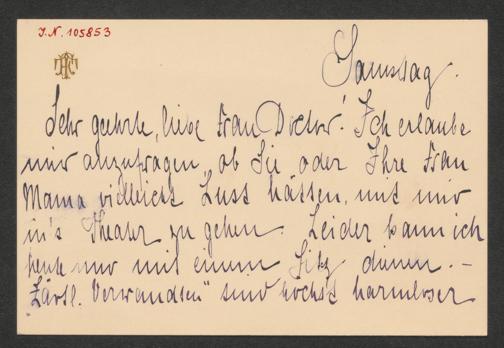 J.N. 105853
Samstag.
Sehr geehrte, liebe Frau Doctor! Ich erlaube
mir anzufragen, ob Sie oder Ihre Frau
Mama vielleicht Lust hätten, mit mir
in's Theater zu gehen. Leider kann ich
heute nur mit einem Sitz dienen. –
„Zärtl. Verwandten" sind höchst harmloser